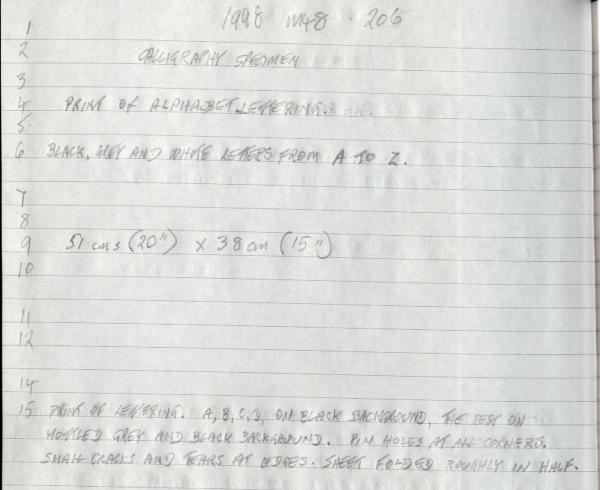 1998 M48 . 206
1
2 CALLIGRAPHY SPECIMEN
3
4 PRINT OF ALPHABET LETTERING.
5.
6 BLACK, GREY AND WHITE LETTERS FROM A TO Z.
7
8
9 51 cms (20") x 38 cm (15")
10
11
12
14
15 PRINT OF LETTERING. A, B, C, D, ON BLACK BACKGROUND, THE REST ON
MOTTLED GREY AND BLACK BACKGROUND. PIN HOLES AT ALL CORNERS.
SMALL CRACKS AND TEARS AT EDGES. SHEET FOLDED ROUGHLY IN HALF.